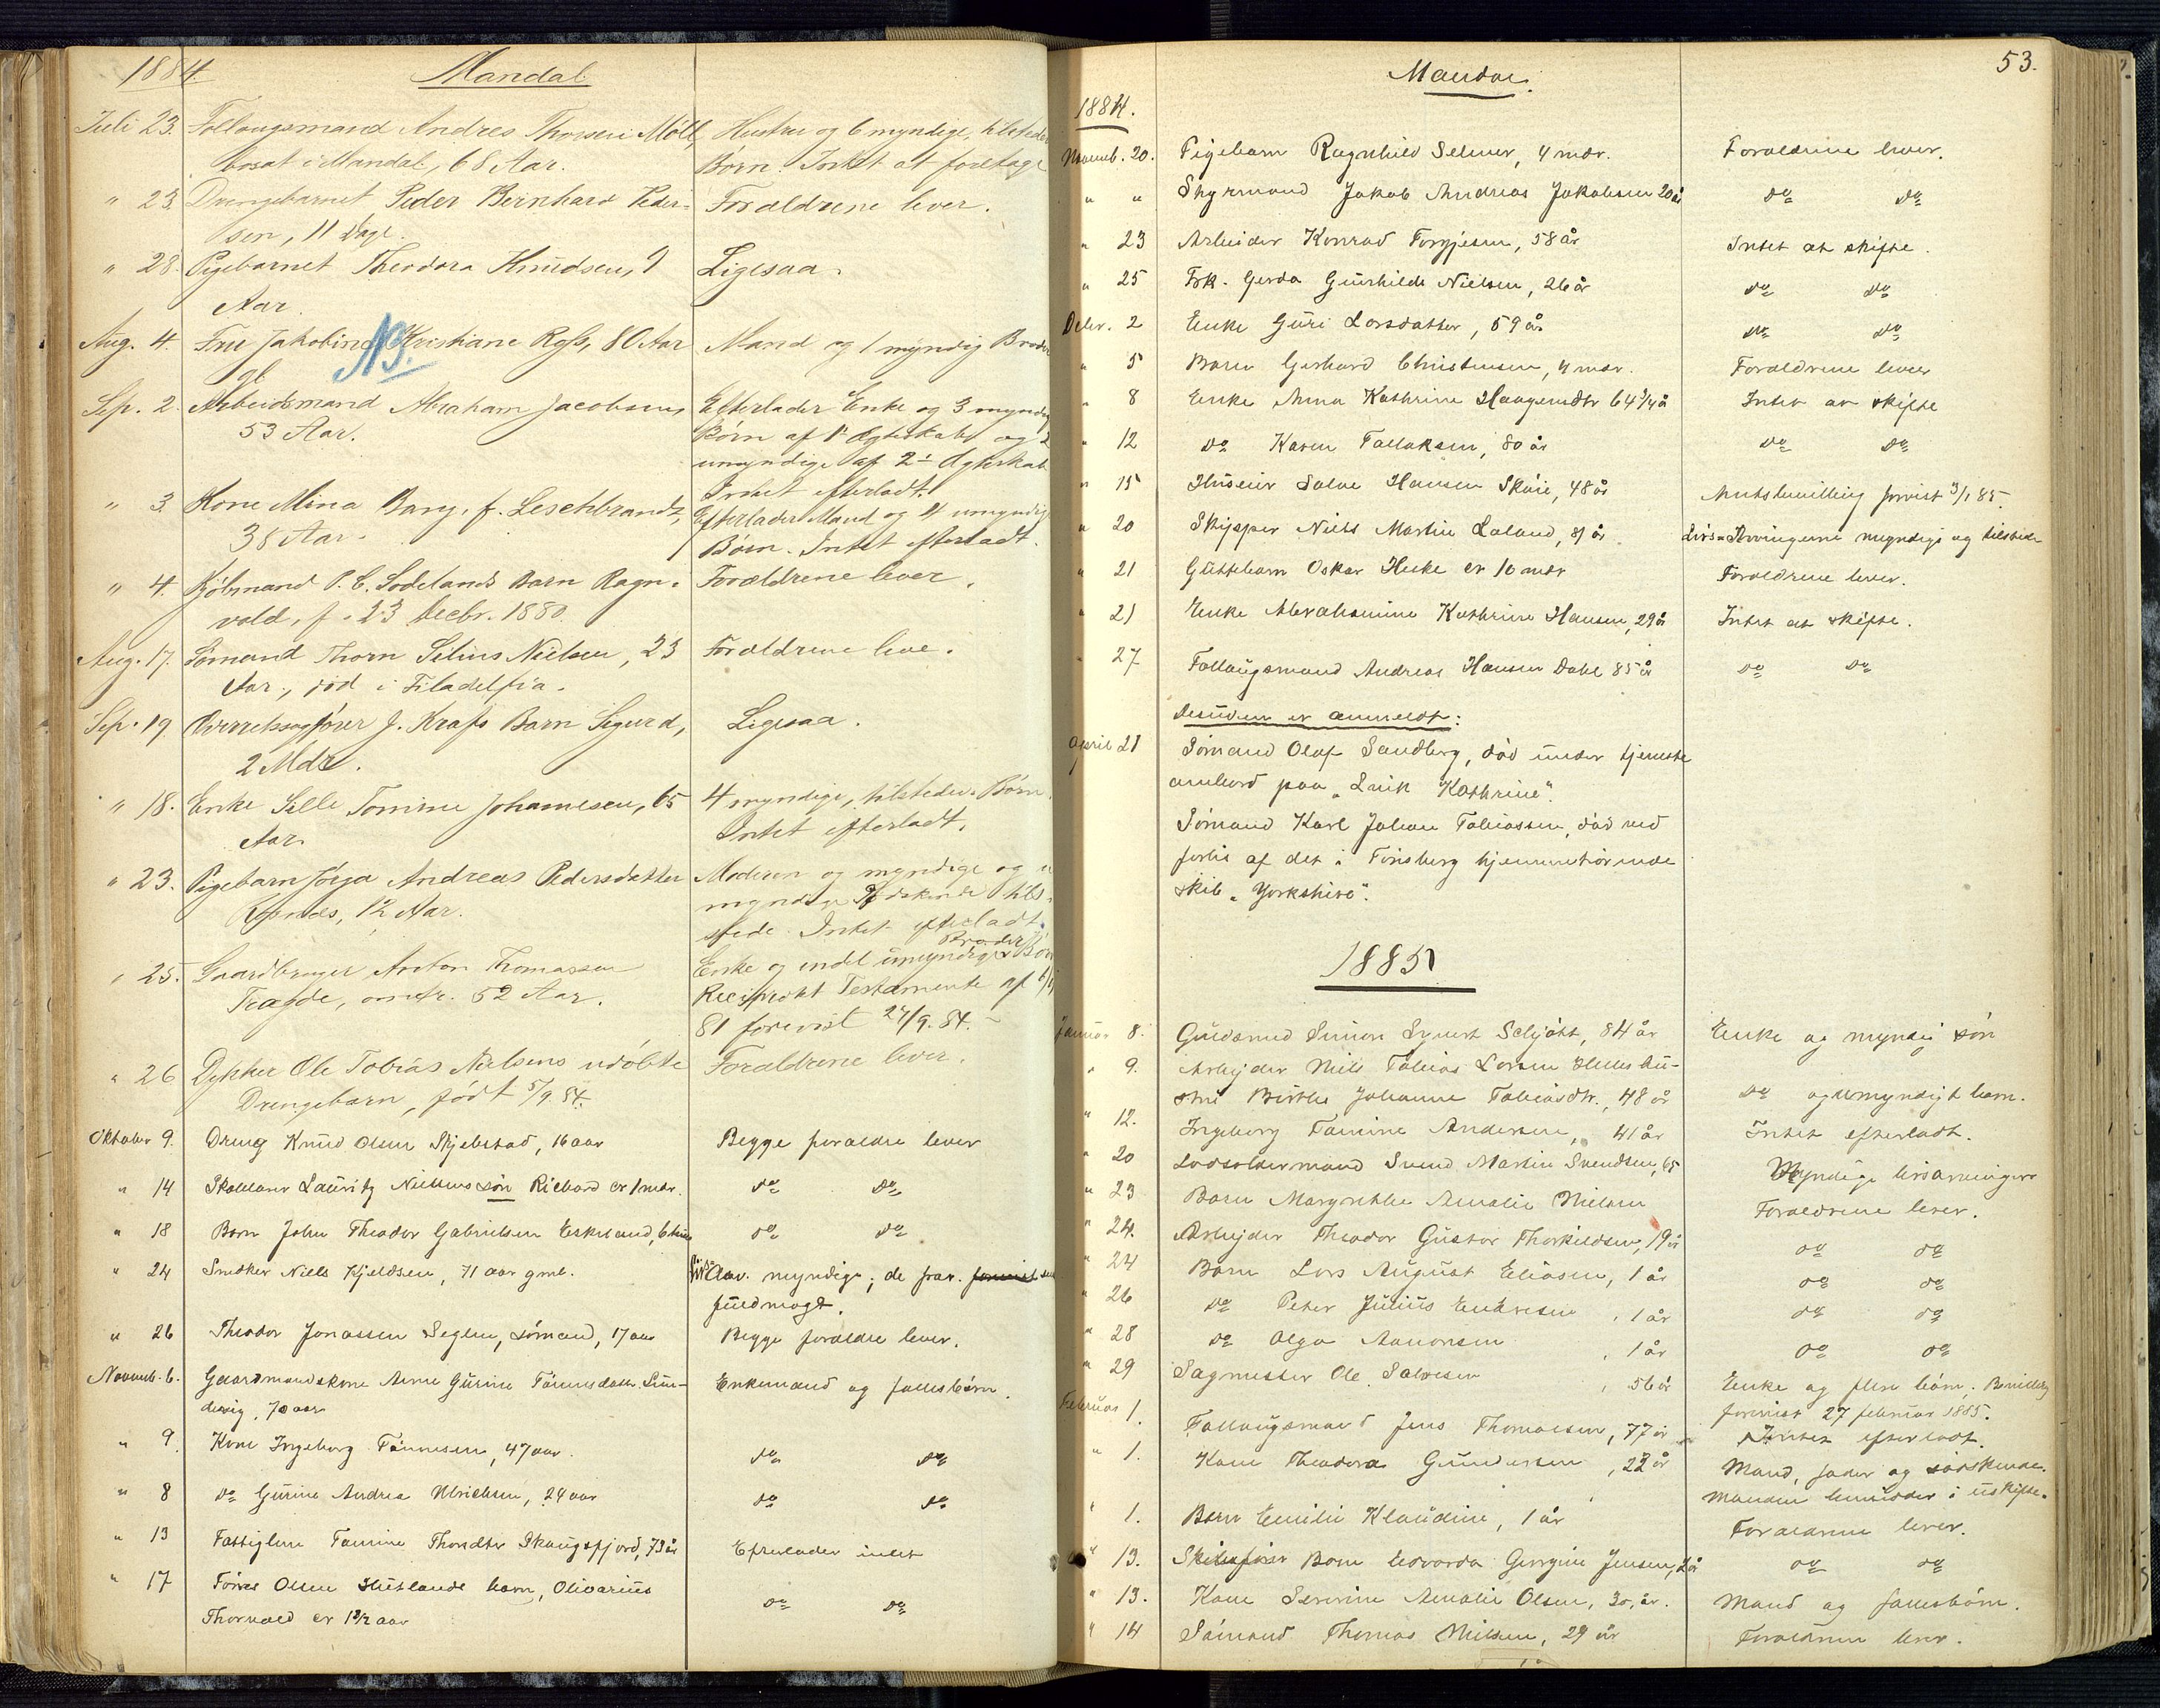 1884. Mandal
Juli 23. Follaugsmand Andres Thorsen Møll, Hustru og 6 myndige, tilstede
bosat i Mandal, 68 Aar. Børn. Intet at foretage
" 23. Drengebarnet Peder Bernhard Peder- Forældrene lever.
sen, 11 Dage.
" 28. Pigebarnet Theodora Knudsen, 9 Ligesaa.
Aar.
Aug. 4. Fru Jakobine Kristiane Ross, 80 Aar Mand og 1 myndig Broder
gl. NB.
Sep. 2. Arbeidsmand Abraham Jacobsen, Efterlader Enke og 3 myndige
53 Aar. Børn af 1ste Ægteskab og 2
umyndige af 2det Ægteskab
Intet efterladt.
" 3. Kone Mina Bang, f. Leschbrandt, Efterlader Mand og 4 umyndige
38 Aar. Børn. Intet efterladt.
" 4. Kjøbmand P. C. Sodelands Barn Ragn- Forældrene lever.
vald, f. 23 Decbr. 1880.
Aug. 17. Sømand Thorn Selius Nielsen, 23 Forældrene leve.
Aar, død i Filadelfia.
Sep. 19 Overretssagfører J. Krafts Barn Sigurd, Ligesaa.
2 Mdr.
" 18. Enke Sille Tomine Johannesen, 65 4 myndige, tilstedev. Børn
Aar. Intet efterladt.
" 23. Pigebarn Jörja Andreas Pedersdatter Moderen og myndige og u
12 Aar. myndige Sødskende tils-
stede. Intet efterladt.
" 25. Gaardbruger Anton Thomassen Enke og endel umyndige Broder Børn
omtr. 52 Aar. Reciprokt Testamente af
81 forevist 27/9. 84.
" 26 Dykker Ole Tobias Nielsens udøbte Forældrene lever.
Drengebarn, født 5/9. 84.
Oktober 9. Dreng Knud Olsen Skjebstad, 16 aar Begge forældre lever
" 14 Skolelærer Lauritz Nielsens søn Richard er 1 mdr. do do
" 18 Barn John Theodor Gabrielsen Eskeland, do do
" 24 Snedker Niels Kjeldsen, 71 aar gml. Arv. myndige; de frav.
fuldmagt.
" 26 Theodor Jonassen Seglem, sømand, 17 aar Begge forældre lever.
Novemb. 6. Gaardmandskone Anne Gurine Tønnesdatter Lun- Enkemand og fællesbørn.
devig, 70 aar
" 9. Kone Ingeborg Tønnesen, 47 aar. do do
" 8 do Gurine Andrea Ulrichsen, 24 aar do do
" 13 Fattiglem Tomine Thorsdtr Skougsfjord, 73 år Efterlader intet
" 17 Tønnes Olsen Hutlands barn, Olivarius do do
Thorvald er 1½ aar
53.
Mandal.
1884.
Novemb. 20. Pigebarn Ragnhild Selmer, 4 mdr. Forældrene lever.
" " Styrmand Jakob Andreas Jakobsen 20 år do do
" 23 Arbeider Konrad Torgjesen, 58 år Intet at skifte.
" 25 Frk. Gerda Gunhilde Nielsen, 26 år do do
Decbr. 2 Enke Guri Larsdatter, 59 år do do
" 5 Barn Gerhard Christensen, 4 mdr. Forældrene lever
" 8 Enke Anna Kathrine Haagensdtr 64¾ å Intet at skifte
" 12 do Karen Tallaksen, 80 år do do
" 15 Huseier Salve Hansen Skøie, 48 år forevist 3/1 85.
" 20 Skipper Niels Martin Laland, 81 år Livs-Arvingerne myndige og tilstede
" 21 Guttebarn Oskar Heike er 10 mdr Forældrene lever.
" 21 Enke Abrahamine Kathrine Hansen, 29 år Intet at skifte.
" 27 Follaugsmand Andreas Hansen Dahl 85 år do do
Desuden er anmeldt:
April 21 Sømand Olaf Sandberg, død under tjeneste
ombord paa "Snik Kathrine".
Sømand Karl Johan Tobiassen, død ved
forlis af det i Tønsberg hjemmehørende
skib "Yorkshire".
1885
Januar 8. Guldsmed Simon Syvert Schjøtt, 84 år Enke og myndig søn
" 9. Arbejder Niels Tobias Larsen hu-
stru Birthe Johanne Tobiasdtr., 48 år do og umyndigt barn.
" 12. Ingeborg Tomine Andersen, 41 år Intet efterladt.
" 20 Lodsoldermand Svend Martin Svendsen, 65 Myndige livsarvinger
" 23 Barn Margrethe Amalie Nielsen Forældrene lever.
" 24. Arbejder Theodor Gustav Thorkildsen, 19 år do do
" 24 Barn Lars August Eliasen, 1 år do do
" 26 do Peter Julius Endresen, 1 år do do
" 28 do Olga Aanonsen, 1 år do do
" 29 Sagmester Ole Salvesen, 56 år Enke og flere børn. Bevilling
forevist 27 februar 1885.
Februar 1. Follaugsmand Jens Thomassen, 77 år Intet efterladt.
" 1. Kone Theodora Gundersen, 22 år Mand, fader og sødskende.
Manden hensidder i uskifte.
" 1. Barn Emilie Klaudine, 1 år Forældrene lever.
" 13. Skibsfører Barn Edvarda Georgine Jensen, 2 år do do
" 13. Kone Severine Amalie Olsen, 30 år. Mand og fællesbørn.
" 14 Sømand Thomas Nielsen, 29 år Forældrene lever.